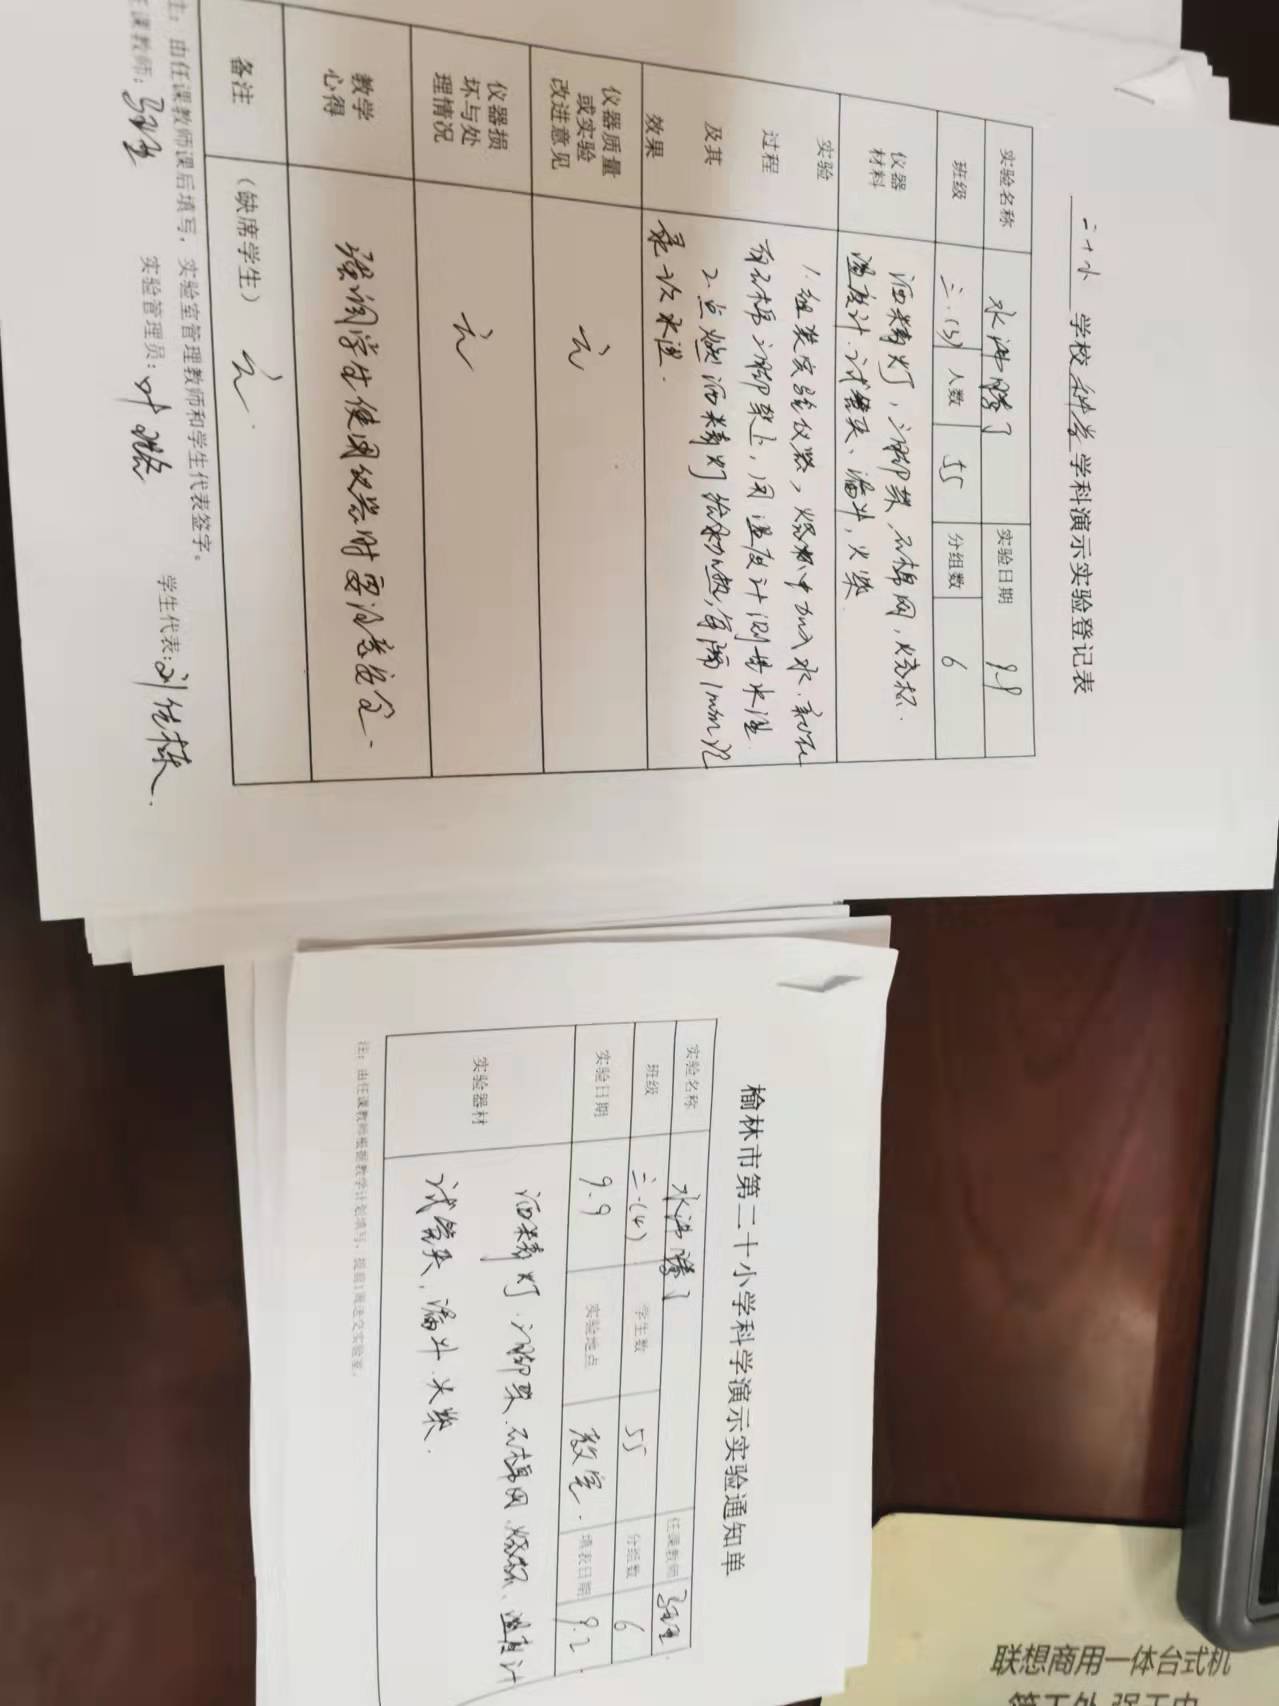 二十小 学校 科学 学科演示实验登记表
实验名称 水沸腾了 实验日期 9.9
班级 三.(3) 人数 55 分组数 6
仪器材料 酒精灯,三脚架,石棉网,烧杯.
温度计.试管夹、漏斗,火柴.
实验过程及其效果
1.组装实验仪器,烧杯中加入水.放在
有石棉三脚架上,用温度计测量水温.
2.点燃酒精灯给水加热,每隔1min记
录一次水温.
仪器质量或实验改进意见 无
仪器损坏与处理情况 无
教学心得 强调学生使用仪器时要注意安全.
备注 (缺席学生) 无.
注:由任课教师课后填写,实验室管理教师和学生代表签字。
任课教师: 实验管理员:叶 学生代表:刘佐栋.
榆林市第二十小学科学演示实验通知单
实验名称 水沸腾了 任课教师
班级 三.(4) 学生数 55 分组数 6
实验日期 9.9 实验地点 教室. 填表日期 9.2.
实验器材 酒精灯.三脚架.石棉网.烧杯、温度计
试管夹,漏斗.火柴.
注:由任课教师根据教学计划填写,提前1周送交实验室。
联想商用一体台式机